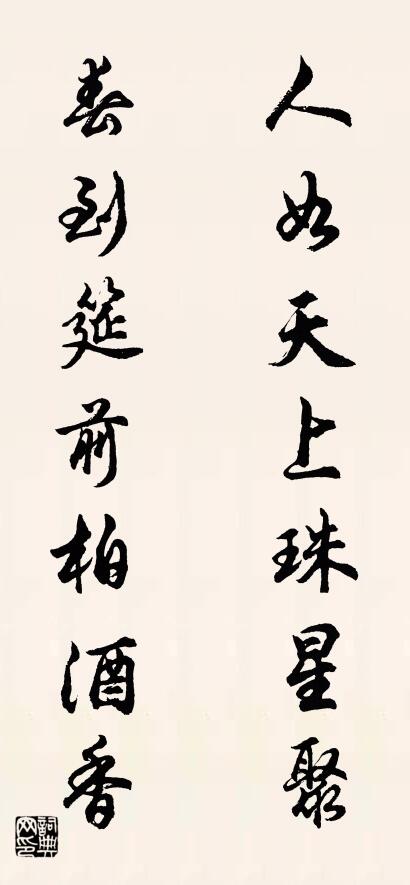 人如天上珠星聚
春到筵前柏酒香
詞典网印